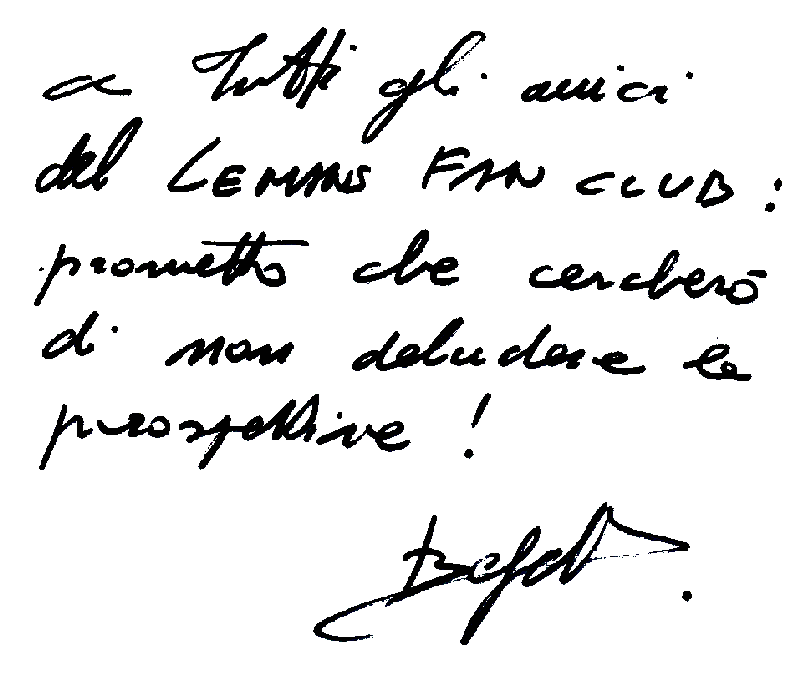 a tutti gli amici
del LEMANS FAN CLUB :
prometto che cercherò
di non deludere le
prospettive !